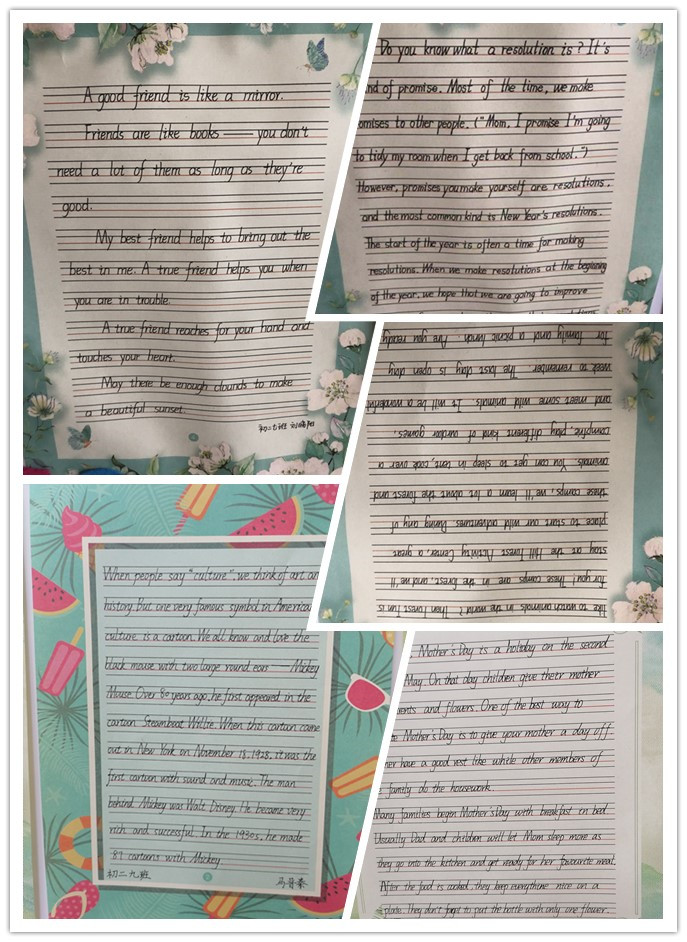 A good friend is like a mirror.
Friends are like books — you don't
need a lot of them as long as they're
good.
My best friend helps to bring out the
best in me. A true friend helps you when
you are in trouble.
A true friend reaches for your hand and
touches your heart.
May there be enough clounds to make
a beautiful sunset.
初二七班
Do you know what a resolution is? It's
nd of promise. Most of the time, we make
omises to other people. ("Mom, I promise I'm going
to tidy my room when I get back from school.")
However, promises you make yourself are resolutions,
and the most common kind is New Year's resolutions.
The start of the year is often a time for making
resolutions. When we make resolutions at the beginning
of the year, we hope that we are going to improve
like to watch animals in the world? Then Forest Fun is
for you! These camps are in the forest, and we'll
stay at the Hill Forest Activity Center, a great
place to start our wild adventures. During
these camps, we'll learn a lot about the forest and
animals. You can get to sleep in tent, cook over a
campfire, play different kind of games,
and meet some wild animals. It will be a wonderful
week to remember. The last day is open day
for family and a picnic lunch. Are you ready
When people say "culture", we think of art an
history. But one very famous symbol in American
culture is a cartoon. We all know and love the
black mouse with two large round ears — Mickey
Mouse. Over 80 years ago, he first appeared in the
cartoon Steamboat Willie. When this cartoon came
out in New York on November 18, 1928, it was the
first cartoon with sound and music. The man
behind Mickey was Walt Disney. He became very
rich and successful. In the 1930s, he made
87 cartoons with Mickey.
初二九班
Mother's Day is a holiday on the second
May. On that day children give their mother
ents and flowers. One of the best way to
Mother's Day is to give your mother a day off
her have a good rest like while other members of
family do the housework.
Many families begin Mother's Day with breakfast in bed.
Usually Dad and children will let Mom sleep more as
they go into the kitchen and get ready for her favourite meal.
After the food is cooked, they keep everything nice on a
plate. They don't forget to put the bottle with only one flower.